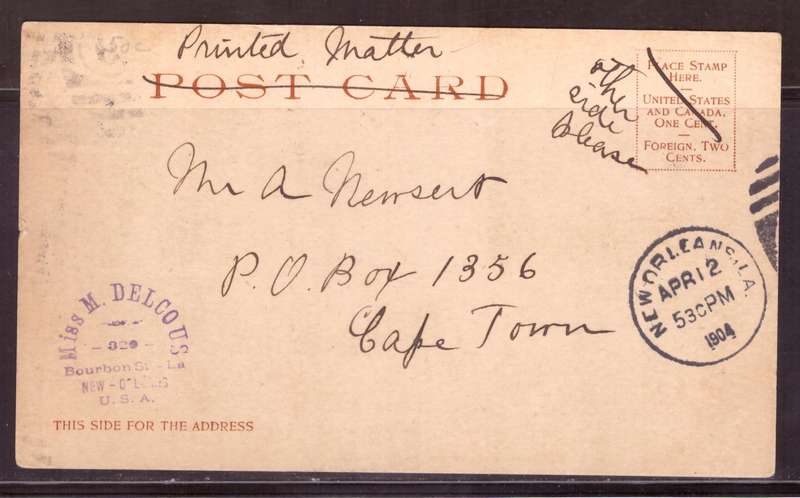 Printed Matter
POST CARD
other
side
please
PLACE STAMP
HERE.
UNITED STATES
AND CANADA,
ONE CENT.
FOREIGN, TWO
CENTS.
Mr A Newsert
P.O. Box 1356
Cape Town
NEW ORLEANS, LA.
APR 12
530 PM
1904
Miss M. DELCOUS
329
Bourbon St - La
NEW-ORLEANS
U.S.A.
THIS SIDE FOR THE ADDRESS